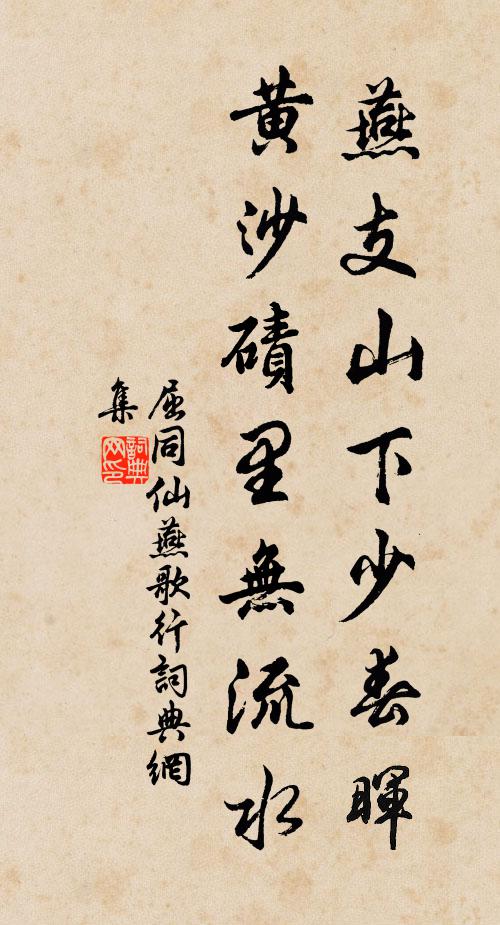 燕支山下少春暉
黄沙磧里無流水
屈同仙燕歌行詞典網
集
詞典
网印